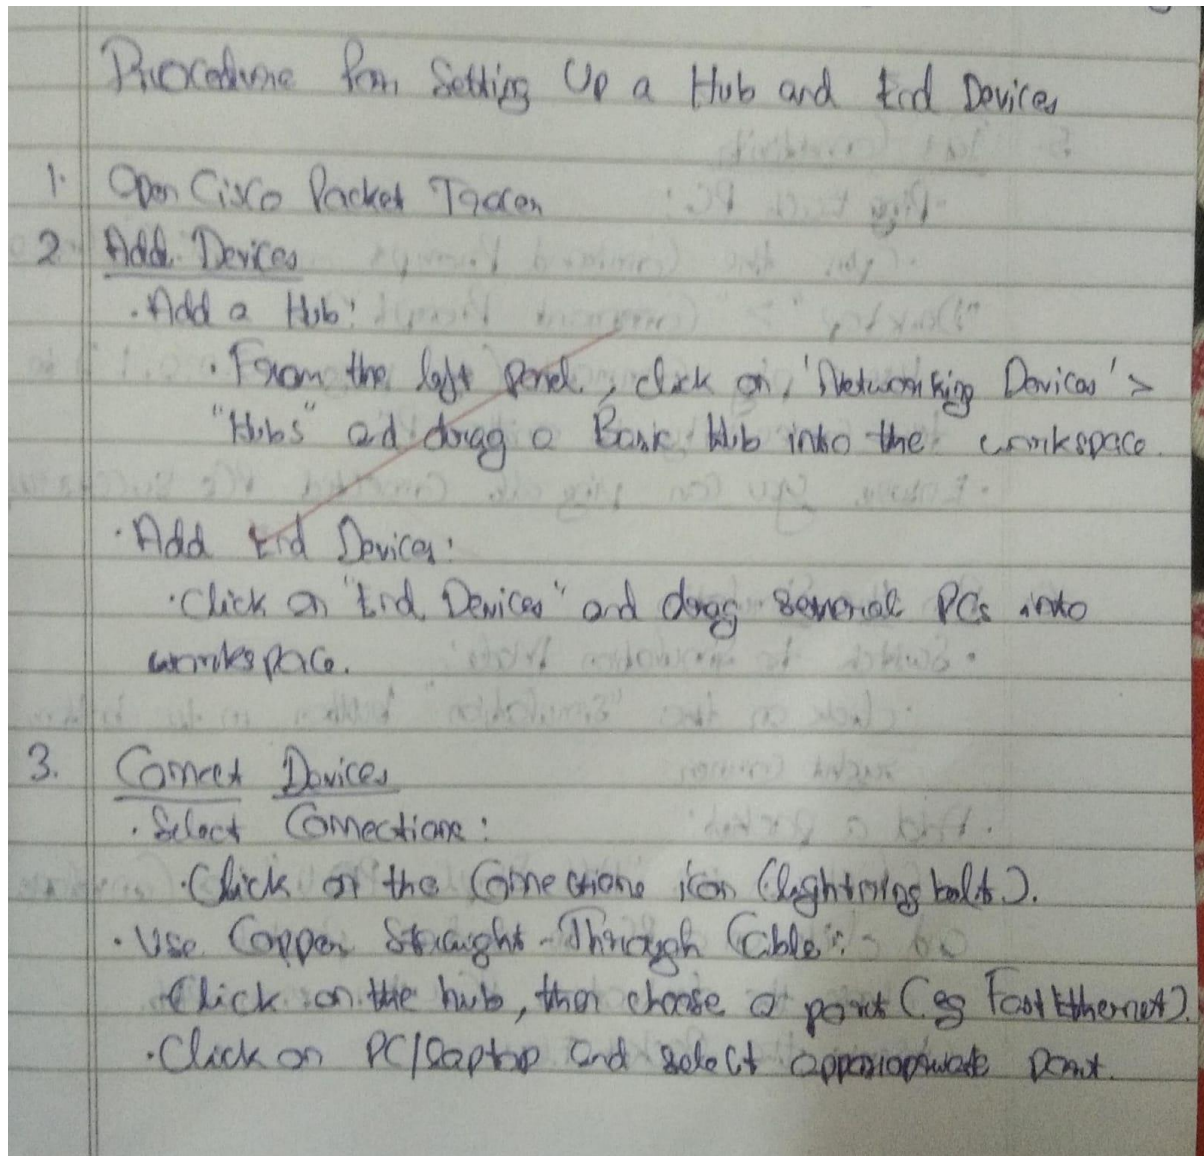 Procedure for Setting Up a Hub and End Devices
1. Open Cisco Packet Tracer
2 Add Devices
· Add a Hub:
· From the left panel, click on 'Networking Devices' >
"Hubs" ad drag a Basic Hub into the workspace.
· Add End Devices:
· Click on "End Devices" and drag several PCs into
workspace.
3. Connect Devices
· Select Connections:
· Click on the Connections icon (lightning bolt).
· Use Copper Straight-Through Cable:
Click on the hub, then choose a port (eg FastEthernet).
· Click on PC/Laptop and select appropriate port.